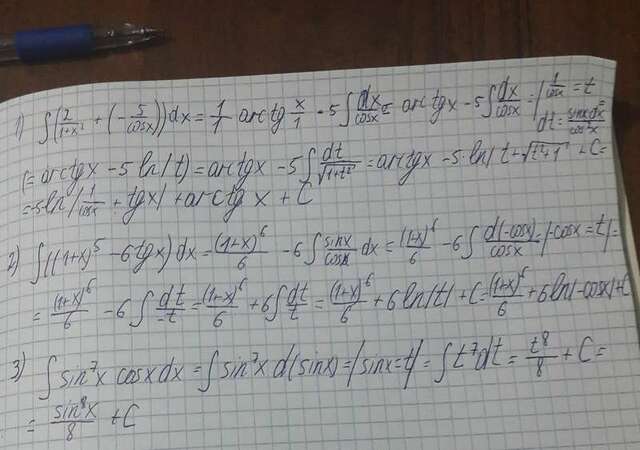 1) ∫(2/(1+x²) + (-5/cosx))dx = 1/1 arctg x/1 - 5∫dx/cosx = arctgx - 5∫dx/cosx = |1/cosx = t
dt = sinxdx/cos²x
(= arctgx - 5 ln|t) = arctgx - 5∫dt/√(1+t²) = arctgx - 5 ln|t + √(t²+1)| + C =
= -5ln|1/cosx + tgx| + arctgx + C
2) ∫((1+x)⁵ - 6tgx)dx = (1+x)⁶/6 - 6∫sinx/cosx dx = (1+x)⁶/6 - 6∫d(-cosx)/cosx = |-cosx = t| =
= (1+x)⁶/6 - 6∫dt/-t = (1+x)⁶/6 + 6∫dt/t = (1+x)⁶/6 + 6ln|t| + C = (1+x)⁶/6 + 6ln|-cosx| + C
3) ∫sin⁷x cosxdx = ∫sin⁷x d(sinx) = |sinx = t| = ∫t⁷dt = t⁸/8 + C =
= sin⁸x/8 + C